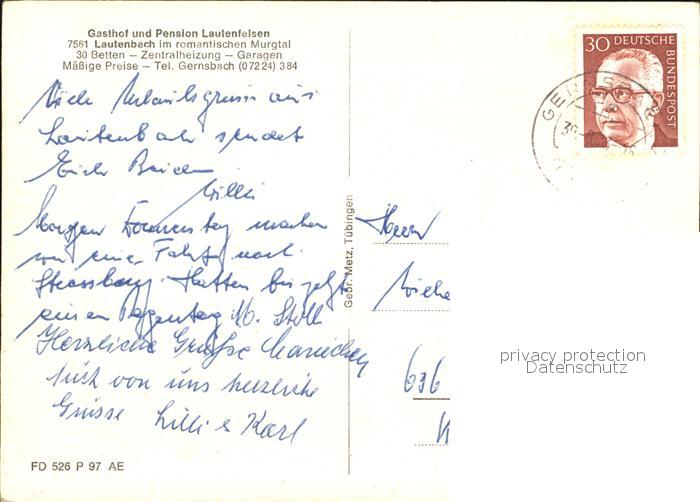 Gasthof und Pension Lautenfelsen
7561 Lautenbach im romantischen Murgtal
30 Betten — Zentralheizung — Garagen
Mäßige Preise — Tel. Gernsbach (07224) 384
Viele Urlaubsgrüsse aus
Lautenbach sendet
Euch Beiden
Willi
Morgen Donnerstag machen
wir eine Fahrt nach
Strassburg. Hatten bis jetzt
einen Regentag. M. Stoll
Herzliche Grüße
Auch von uns herzliche
Grüsse Lilli & Karl
FD 526 P 97 AE
Gebr. Metz, Tübingen
30 DEUTSCHE
BUNDESPOST
Herrn
636
privacy protection
Datenschutz